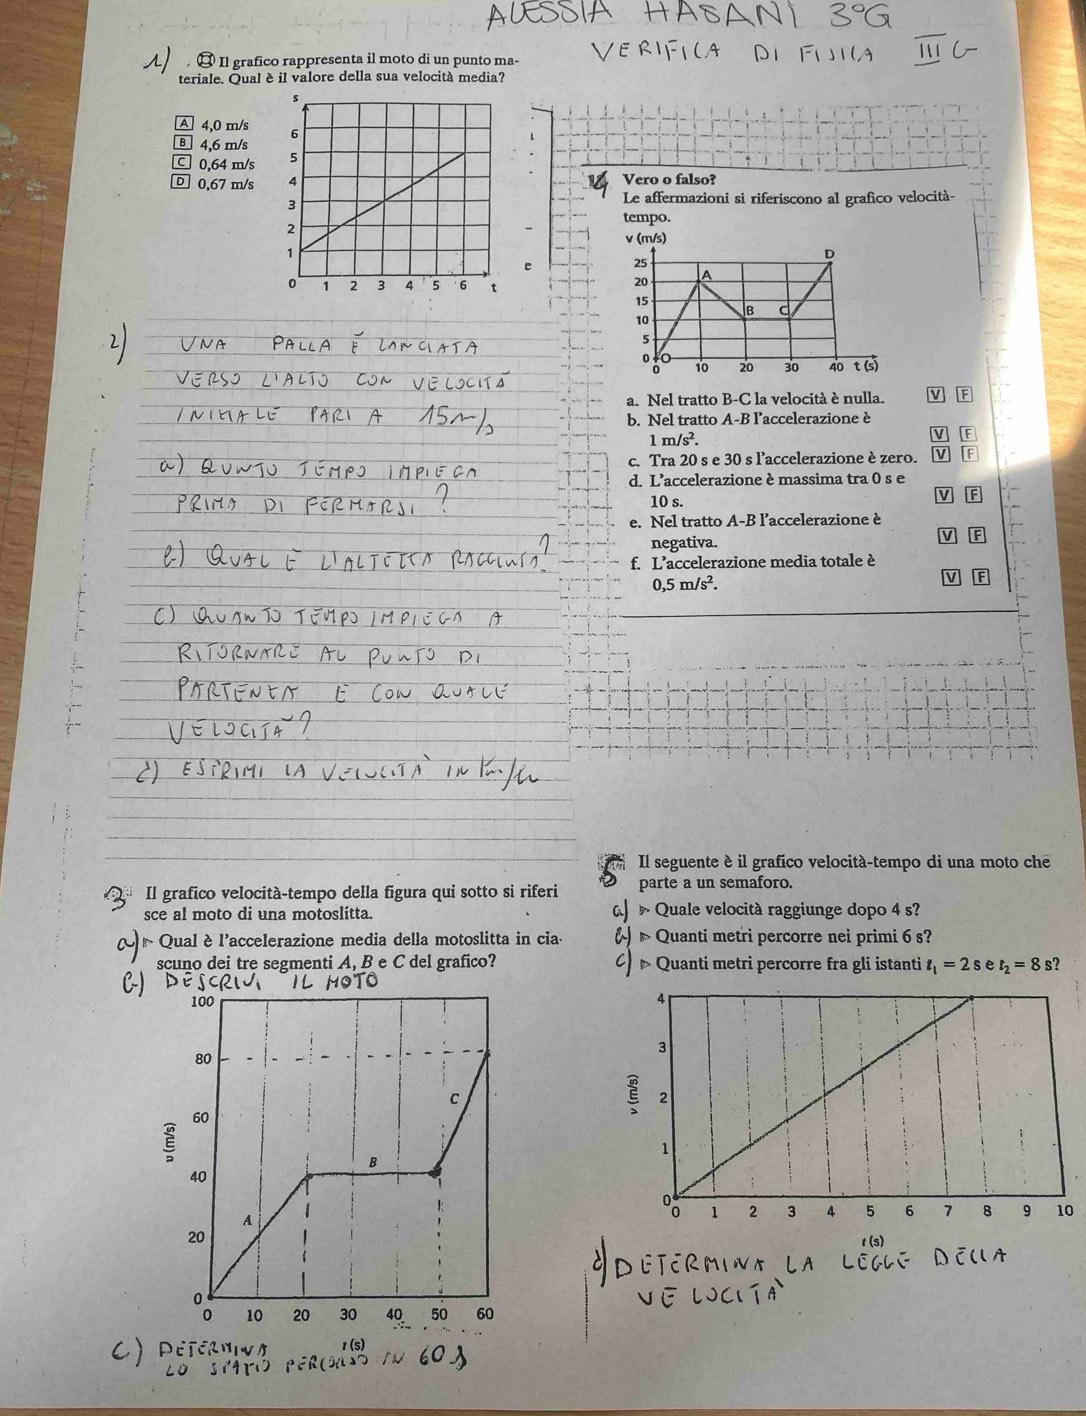 ALESSIA HASANI 3°G
VERIFICA DI FISICA III G
1) Il grafico rappresenta il moto di un punto ma-
teriale. Qual è il valore della sua velocità media?
A 4,0 m/s
B 4,6 m/s
C 0,64 m/s
D 0,67 m/s
s
6
5
4
3
2
1
0 1 2 3 4 5 6 t
e
2) UNA PALLA È LANCIATA
VERSO L'ALTO CON VELOCITÀ
INIZIALE PARI A 15 m/s
a) QUNTO TEMPO IMPIEGA
PRIMA DI FERMARSI?
b) QUAL È L'ALTEZZA RAGGIUNTA?
C) QUANTO TEMPO IMPIEGA A
RITORNARE AL PUNTO DI
PARTENZA E CON QUALE
VELOCITÀ?
d) ESPRIMI LA VELOCITÀ IN Km/h
3 Il grafico velocità-tempo della figura qui sotto si riferi
sce al moto di una motoslitta.
a) Qual è l'accelerazione media della motoslitta in cia-
scuno dei tre segmenti A, B e C del grafico?
b) DESCRIVI IL MOTO
100
80
60
40
20
0
v (m/s)
A
B
C
0 10 20 30 40 50 60
t (s)
C) DETERMINA
LO SPAZIO PERCORSO IN 60 s
4 Vero o falso?
Le affermazioni si riferiscono al grafico velocità-
tempo.
v (m/s)
25
20
15
10
5
0
A
B
C
D
O
0 10 20 30 40 t (s)
a. Nel tratto B-C la velocità è nulla. V F
b. Nel tratto A-B l'accelerazione è
1 m/s². V F
c. Tra 20 s e 30 s l'accelerazione è zero. V F
d. L'accelerazione è massima tra 0 s e
10 s. V F
e. Nel tratto A-B l'accelerazione è
negativa. V F
f. L'accelerazione media totale è
0,5 m/s². V F
5 Il seguente è il grafico velocità-tempo di una moto che
parte a un semaforo.
a) Quale velocità raggiunge dopo 4 s?
b) Quanti metri percorre nei primi 6 s?
c) Quanti metri percorre fra gli istanti t₁ = 2 s e t₂ = 8 s?
4
3
2
1
0
v (m/s)
0 1 2 3 4 5 6 7 8 9 10
t (s)
d) DETERMINA LA LEGGE DELLA
VELOCITÀ